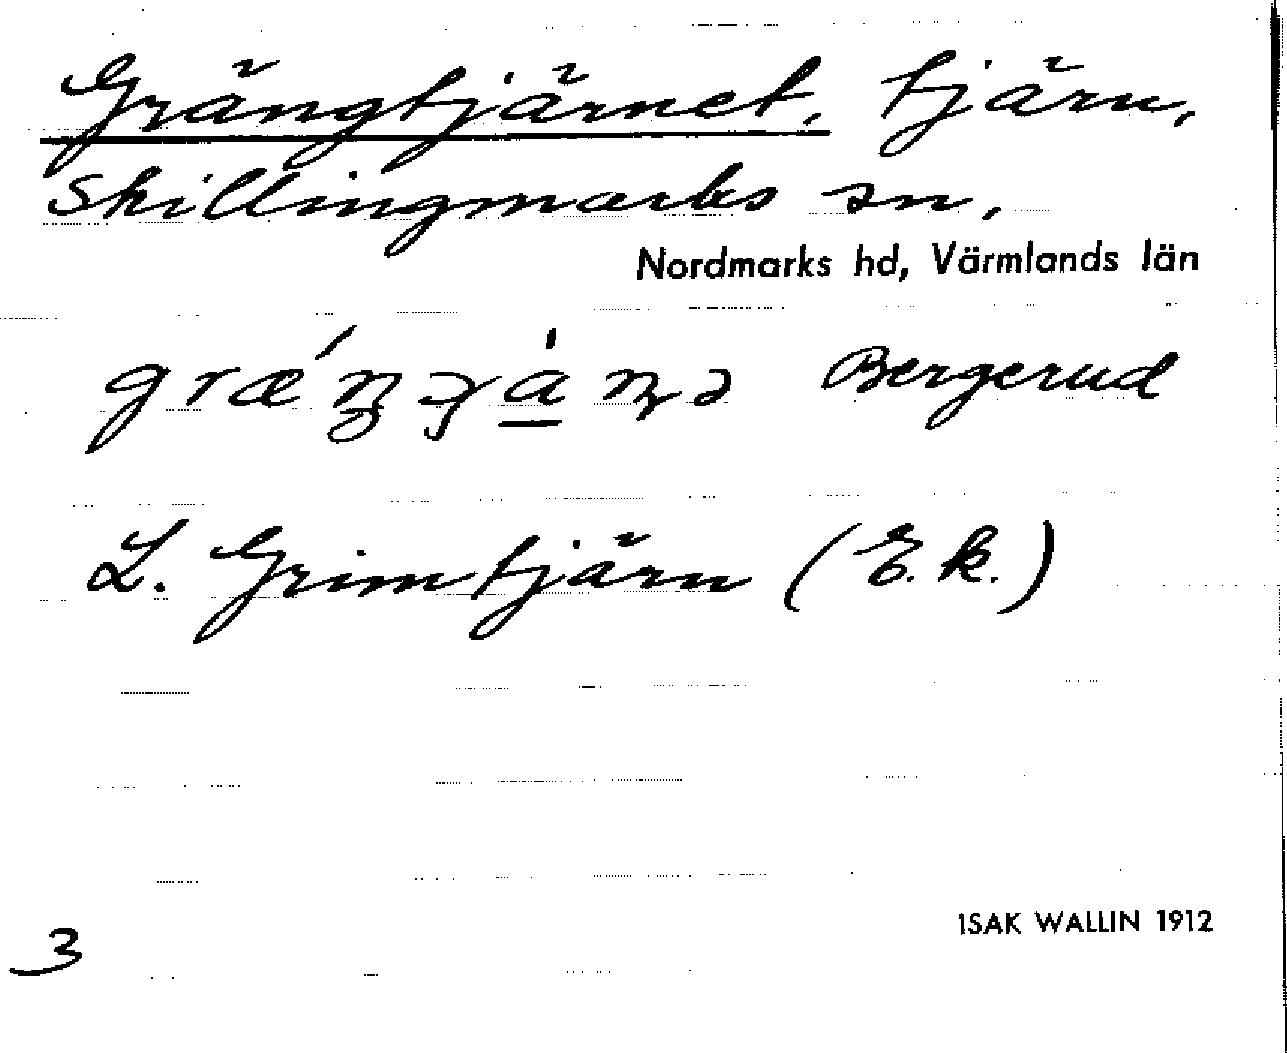 Grängtjärnet, tjärn,
Skillingmarks sn,
Nordmarks hd, Värmlands län
Bergerud
L. Grimtjärn (E.k.)
ISAK WALLIN 1912
3